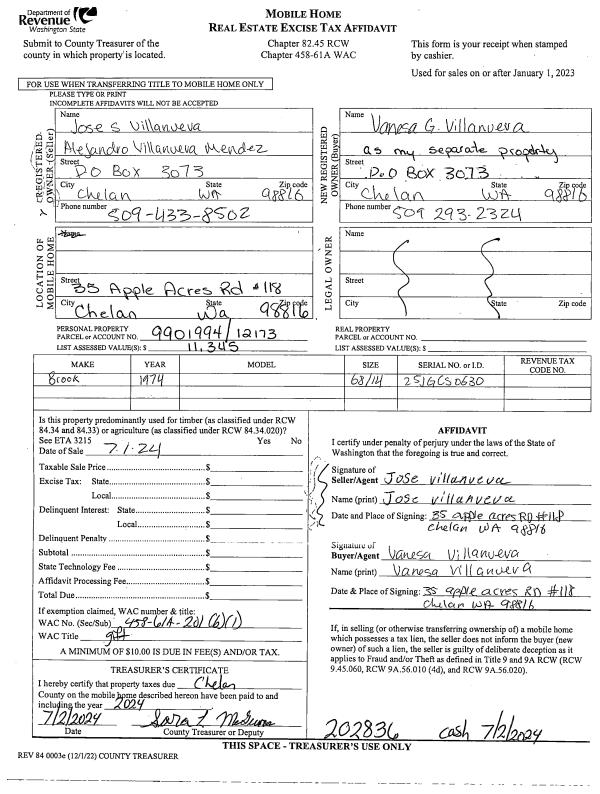 Department of
Revenue
Washington State
MOBILE HOME
REAL ESTATE EXCISE TAX AFFIDAVIT
Submit to County Treasurer of the
county in which property is located.
Chapter 82.45 RCW
Chapter 458-61A WAC
This form is your receipt when stamped
by cashier.
Used for sales on or after January 1, 2023
FOR USE WHEN TRANSFERRING TITLE TO MOBILE HOME ONLY
PLEASE TYPE OR PRINT
INCOMPLETE AFFIDAVITS WILL NOT BE ACCEPTED
REGISTERED
OWNER (Seller)
Name
Jose S Villanueva
Alejandro Villanueva Mendez
Street
P.O Box 3073
City State Zip code
Chelan WA 98816
Phone number
509-433-8502
NEW REGISTERED
OWNER (Buyer)
Name
Vanesa G. Villanueva
as my separate property
Street
P.O Box 3073
City State Zip code
Chelan WA 98816
Phone number
509 293-2324
LOCATION OF
MOBILE HOME
Name
Street
35 Apple Acres Rd #118
City State Zip code
Chelan Wa 98816
LEGAL OWNER
Name
Street
City State Zip code
PERSONAL PROPERTY
PARCEL or ACCOUNT NO. 9901994/12173
LIST ASSESSED VALUE(S): $ 11,345
REAL PROPERTY
PARCEL or ACCOUNT NO.
LIST ASSESSED VALUE(S): $
MAKE YEAR MODEL SIZE SERIAL NO. or I.D. REVENUE TAX CODE NO.
Brook 1974 68/14 251GCSD630
Is this property predominantly used for timber (as classified under RCW
84.34 and 84.33) or agriculture (as classified under RCW 84.34.020)?
See ETA 3215 Yes No
Date of Sale 7.1.24
Taxable Sale Price $
Excise Tax: State $
Local $
Delinquent Interest: State $
Local $
Delinquent Penalty $
Subtotal $
State Technology Fee $
Affidavit Processing Fee $
Total Due $
If exemption claimed, WAC number & title:
WAC No. (Sec/Sub) 458-61A-201 (b)(1)
WAC Title gift
A MINIMUM OF $10.00 IS DUE IN FEE(S) AND/OR TAX.
TREASURER'S CERTIFICATE
I hereby certify that property taxes due Chelan
County on the mobile home described hereon have been paid to and
including the year 2024
7/2/2024
Date County Treasurer or Deputy
AFFIDAVIT
I certify under penalty of perjury under the laws of the State of
Washington that the foregoing is true and correct.
Signature of
Seller/Agent Jose villanueva
Name (print) Jose villanueva
Date and Place of Signing: 35 apple acres RD #118
chelan WA 98816
Signature of
Buyer/Agent Vanesa Villanueva
Name (print) Vanesa Villanueva
Date & Place of Signing: 35 apple acres RD #118
Chelan WA 98816
If, in selling (or otherwise transferring ownership of) a mobile home
which possesses a tax lien, the seller does not inform the buyer (new
owner) of such a lien, the seller is guilty of deliberate deception as it
applies to Fraud and/or Theft as defined in Title 9 and 9A RCW (RCW
9.45.060, RCW 9A.56.010 (4d), and RCW 9A.56.020).
202836 cash 7/2/2024
THIS SPACE - TREASURER'S USE ONLY
REV 84 0003e (12/1/22) COUNTY TREASURER